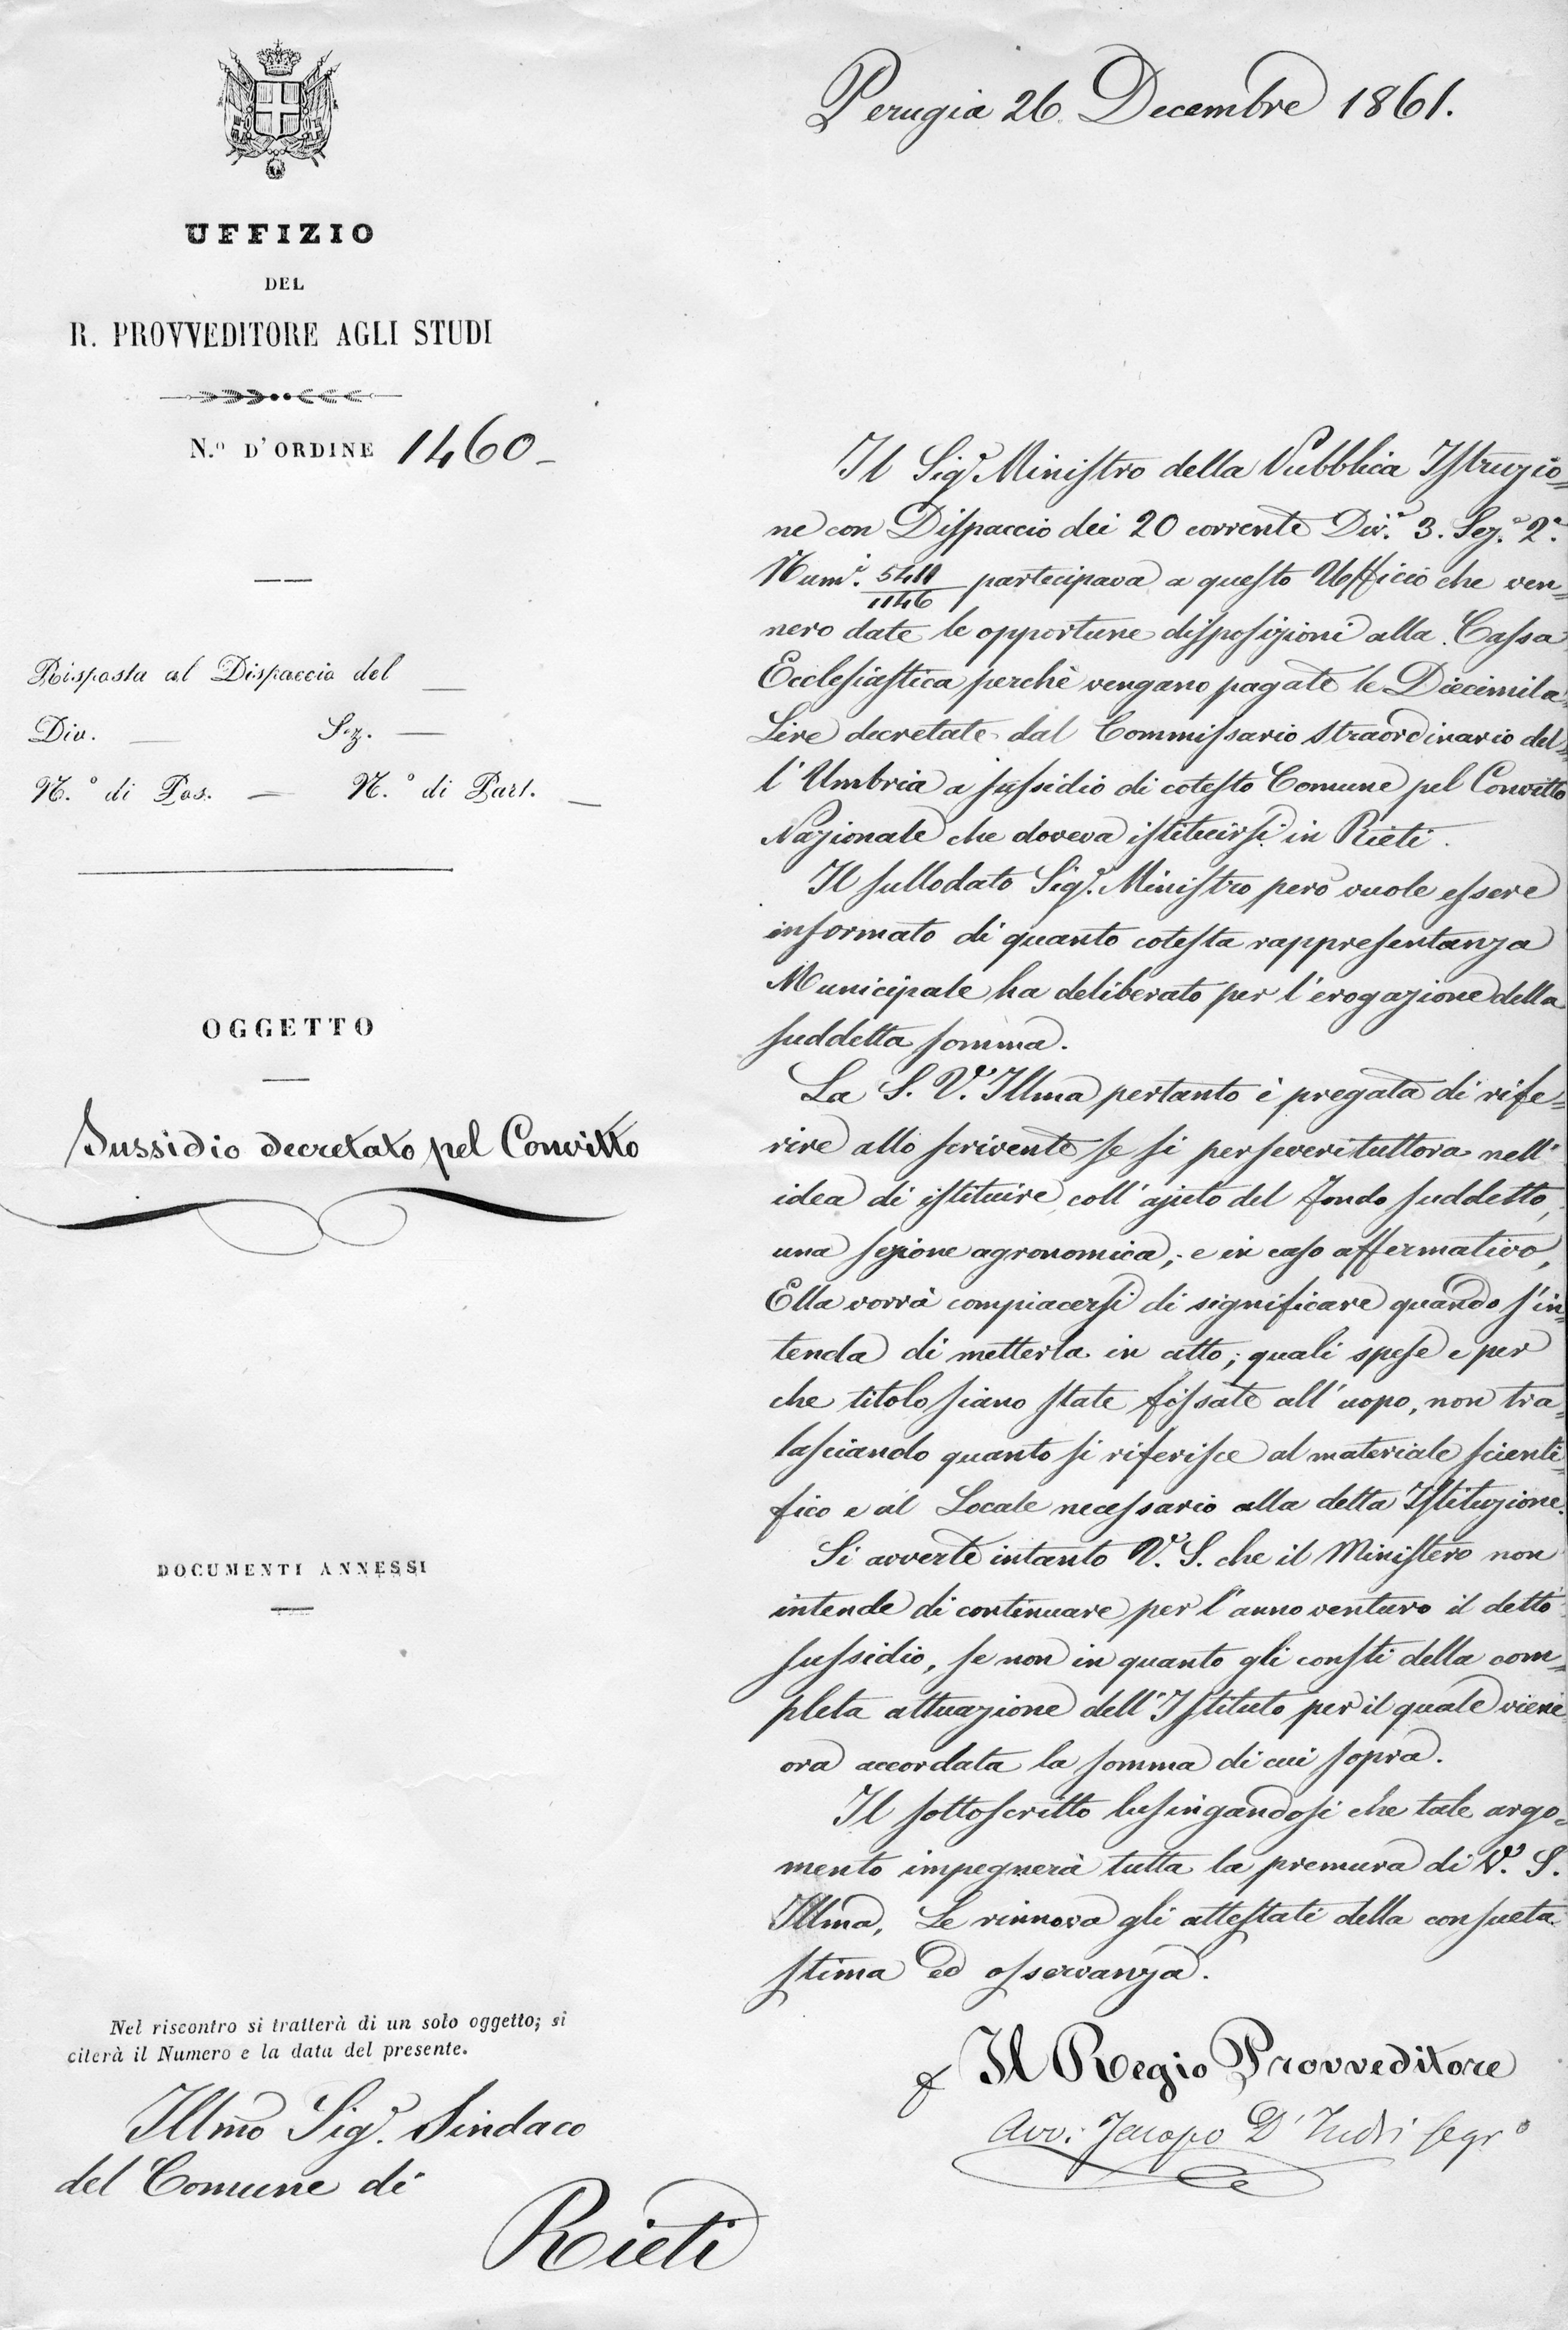 UFFIZIO
DEL
R. PROVVEDITORE AGLI STUDI
N.º D'ORDINE 1460_
Risposta al Dispaccio del —
Div. — Sez. —
N.º di Pos. — N.º di Part. —
OGGETTO
Sussidio decretato pel Convitto
DOCUMENTI ANNESSI
Nel riscontro si tratterà di un solo oggetto; si
citerà il Numero e la data del presente.
Illmo Sigr. Sindaco
del Comune di
Rieti
Perugia 26 Decembre 1861.
Il Sigr Ministro della Pubblica Istruzio=
ne con Dispaccio dei 20 corrente Div.e 3. Sez.e 2.a
Numi. partecipava a questo Ufficio che ven=
nero date le opportune disposizioni alla Cassa
Ecclesiastica perchè vengano pagate le Diecimila
Lire decretate dal Commissario straordinario del=
l'Umbria a sussidio di cotesto Comune pel Convitto
Nazionale che doveva istituirsi in Rieti.
Il sullodato Sigr. Ministro però vuole essere
informato di quanto cotesta rappresentanza
Municipale ha deliberato per l'erogazione della
suddetta somma.
La S. V. Illma pertanto è pregata di rife=
rire allo scrivente se si perseveri tuttora nell'
idea di istituire, coll'ajuto del fondo suddetto,
una sezione agronomica; e in caso affermativo,
Ella vorrà compiacersi di significare quando s'in=
tenda di metterla in atto; quali spese e per
che titolo siano state fissate all'uopo, non tra=
lasciando quanto si riferisce al materiale scienti=
fico e al Locale necessario alla detta Istituzione.
Si avverte intanto V. S. che il Ministero non
intende di continuare per l'anno venturo il detto
sussidio, se non in quanto gli consti della com=
pleta attuazione dell'Istituto per il quale viene
ora accordata la somma di cui sopra.
Il sottoscritto lusingandosi che tale argo=
mento impegnerà tutta la premura di V. S.
Illma, Le rinnova gli attestati della consueta
stima ed osservanza.
Il Regio Provveditore
Avv: Jacopo segro